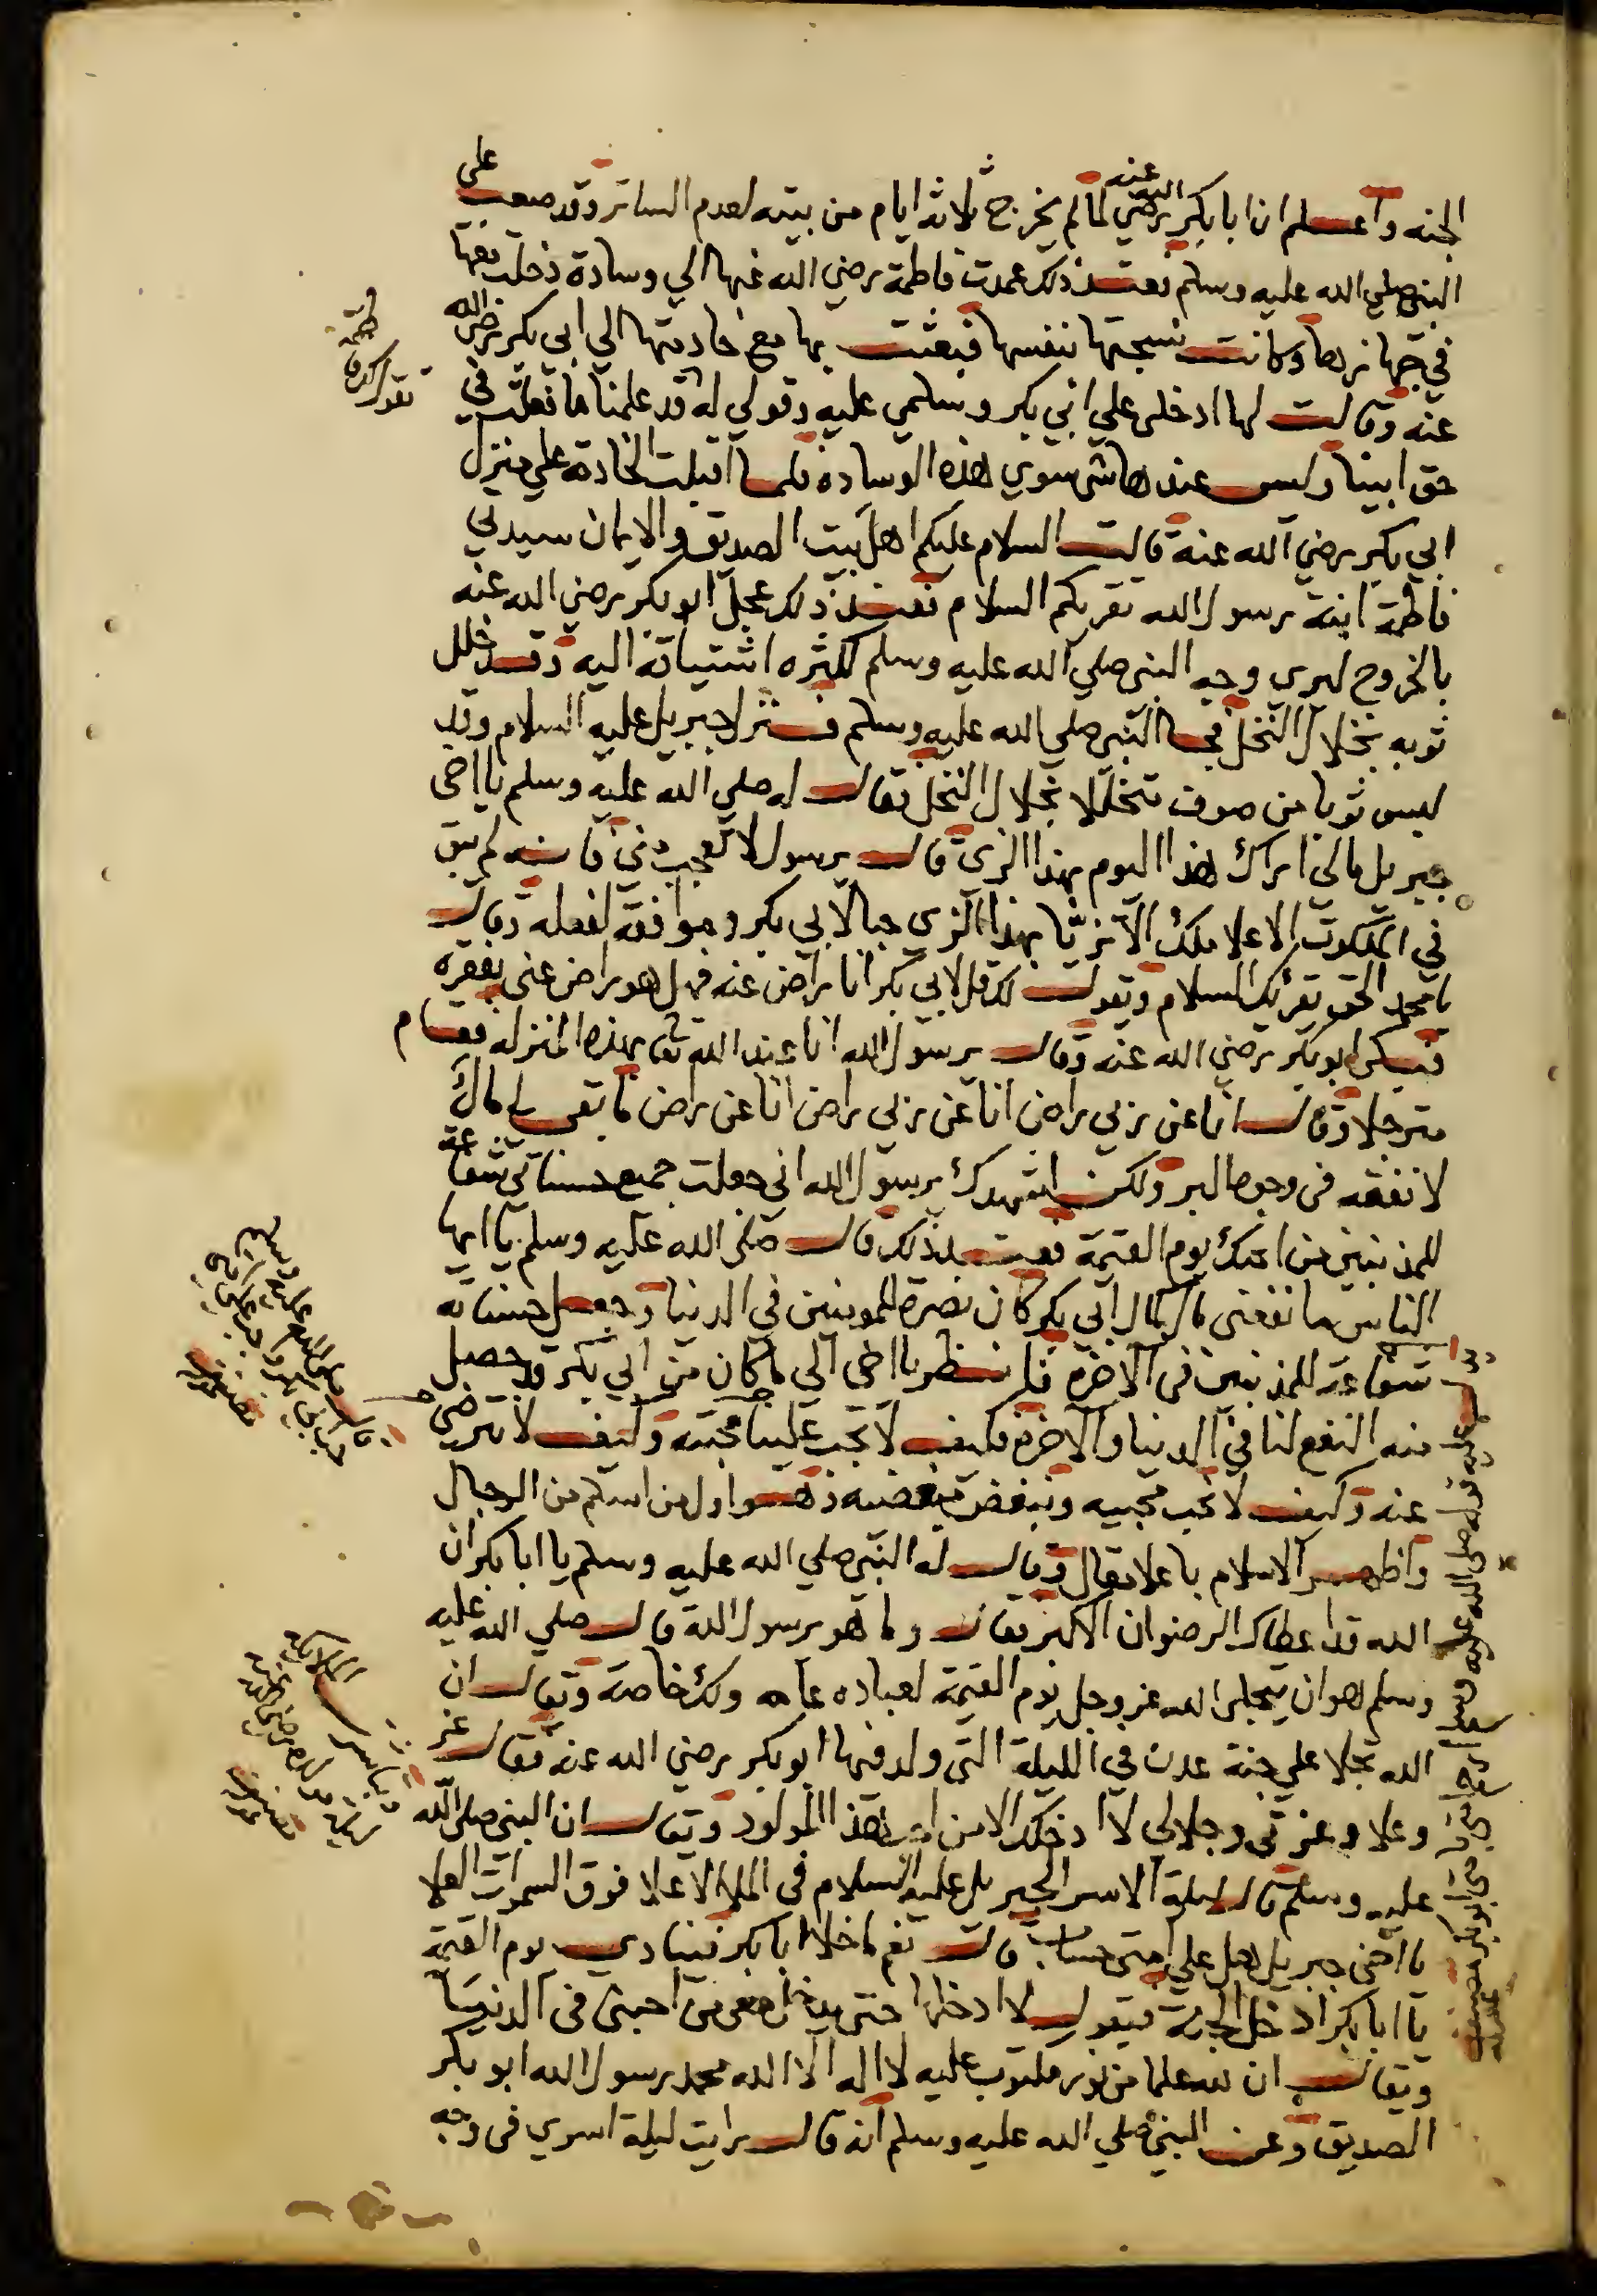 الجنه واعلم ان ابا بكر رضي الله عنه لما لم يخرج ثلاثه ايام من بيته لعدم الساتر وقد صعب على
النبي صلي الله عليه وسلم فعند ذلك عمدت فاطمة رضي الله عنها الي وسادة دخلت بها
في جهازها وكانت نسجتها بنفسها فبعثت بها مع خادمتها الي ابي بكر رضي الله
عنه وقالت لها ادخلي علي ابي بكر وسلمي عليه وقولي له قد علمنا ما فعلت في
حق ابينا وليس عندها شي سوي هذه الوسادة فلما اقبلت الخادمة علي منزل
ابي بكر رضي الله عنه قالت السلام عليكم اهل بيت الصديق والايمان سيدتي
فاطمة ابنة رسول الله تقريكم السلام فعند ذلك عجل ابو بكر رضي الله عنه
بالخروج ليري وجه النبي صلي الله عليه وسلم لكثره اشتياقه اليه وقد خلل
ثوبه بخلال النخل فجا النبي صلي الله عليه وسلم فنزل جبريل عليه السلام وقد
لبس ثوبا من صوف متخللا بخلال النخل فقال له صلي الله عليه وسلم يا اخي
جبريل مالي اراك هذا اليوم بهذا الزي قال يرسول لا تعجب مني فانه لم يبق
في الملكوت الاعلا ملك الا تزيا بهذا الزي حبا لابي بكر وموافقة لفعله وقال
يا محمد الحق يقريك السلام ويقول لك قل لابي بكر انا راض عنه فهل هو راض عني بفقره
فبكي ابو بكر رضي الله عنه وقال يرسول الله انا عند الله تعا بهذه المنزله فقام
مترجلا وقال انا عن ربي راض انا عن ربي راض انا عن راض ما بقي لي مال
لانفقه في وجوه البر ولكن اشهدك يرسول الله اني جعلت جميع حسناتي شفاعة
للمذنبين من امتك يوم القيمة فعند ذلك قال صلي الله عليه وسلم يا ايها
الناس ما نفعني مال كمال ابي بكر كان نصرة للمومنين في الدنيا وجعل حسناته
شفاعة للمذنبين في الاخره فانظر يا اخي الي ما كان من ابي بكر وقد حصل
منه النفع لنا في الدنيا والاخرة فكيف لا تجب علينا محبته وكيف لا نترضي
عنه وكيف لا نحب محبيه ونبغض مبغضيه وهو اول من اسلم من الرجال
واظهر الاسلام باعلا مقال وقال له النبي صلي الله عليه وسلم يا ابا بكر ان
الله قد اعطاك الرضوان الاكبر فقال وما هو يرسول الله قال صلي الله عليه
وسلم هو ان يتجلي الله عز وجل يوم القيمة لعباده عامه ولك خاصة ويقال ان
الله تجلا علي جنة عدن في الليلة التي ولد فيها ابو بكر رضي الله عنه فقال عز
وعلا وعزتي وجلالي لا ادخلك الا من احب هذا المولود ويقال ان النبي صلي الله
عليه وسلم قال ليلة الاسرا لجبريل عليه السلام في الملا الاعلا فوق السموات العلا
يا اخي جبريل هل علي امتي حساب قال نعم ما خلا ابا بكر فينادي يوم القيمة
يا ابا بكر ادخل الجنة فيقول لا ادخلها حتي يدخل معي من احبني في الدنيا
ويقال ان لله علما من نور مكتوب عليه لا اله الا الله محمد رسول الله ابو بكر
الصديق وعن النبي صلي الله عليه وسلم انه قال رايت ليلة اسري في وجه